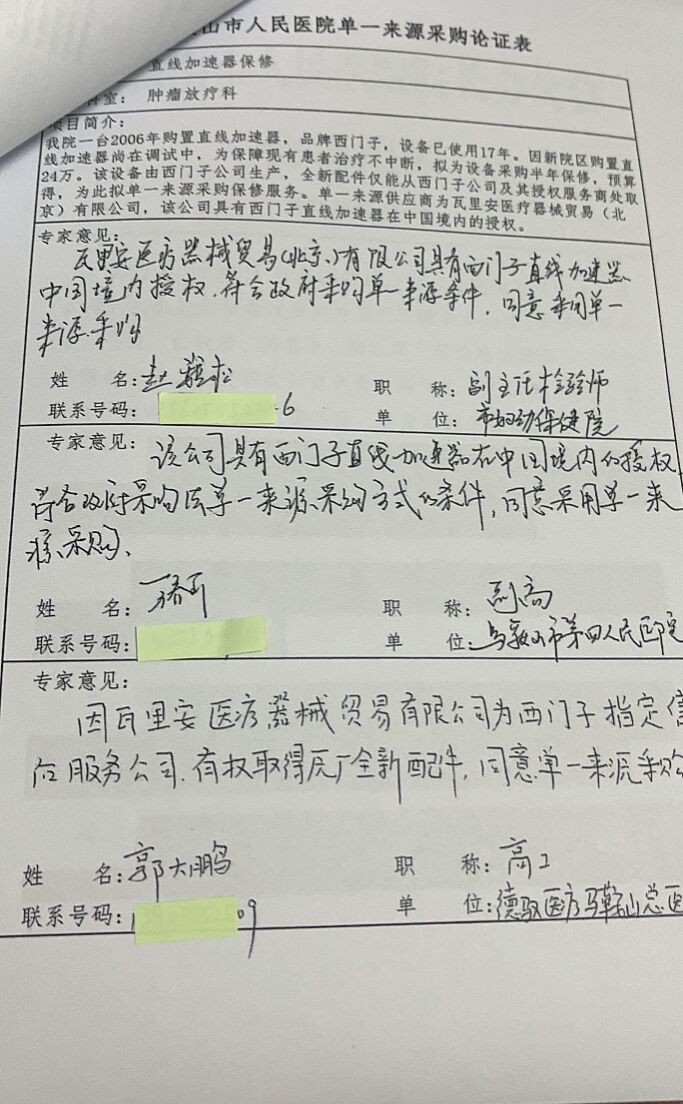 山市人民医院单一来源采购论证表
直线加速器保修
科室: 肿瘤放疗科
项目简介:
我院一台2006年购置直线加速器，品牌西门子，设备已使用17年。因新院区购置直
线加速器尚在调试中，为保障现有患者治疗不中断，拟为设备采购半年保修，预算
24万。该设备由西门子公司生产，全新配件仅能从西门子公司及其授权服务商处取
得，为此拟单一来源采购保修服务。单一来源供应商为瓦里安医疗器械贸易（北
京）有限公司，该公司具有西门子直线加速器在中国境内的授权。
专家意见:
瓦里安医疗器械贸易(北京)有限公司具有西门子直线加速器
中国境内授权.符合政府采购单一来源条件，同意采用单一
来源采购
姓 名: 赵 职 称: 副主任检验师
联系号码: 6 单 位: 市妇幼保健院
专家意见: 该公司具有西门子直线加速器在中国境内的授权
符合政府采购法单一来源采购方式的条件，同意采用单一来
源采购、
姓 名: 职 称: 副高
联系号码: 单 位: 马鞍山市第四人民医院
专家意见:
因瓦里安医疗器械贸易有限公司为西门子指定
后服务公司.有权取得原厂全新配件，同意单一来源采购
姓 名: 郭大鹏 职 称: 高工
联系号码: 09 单 位: 德驭医疗马鞍山总医